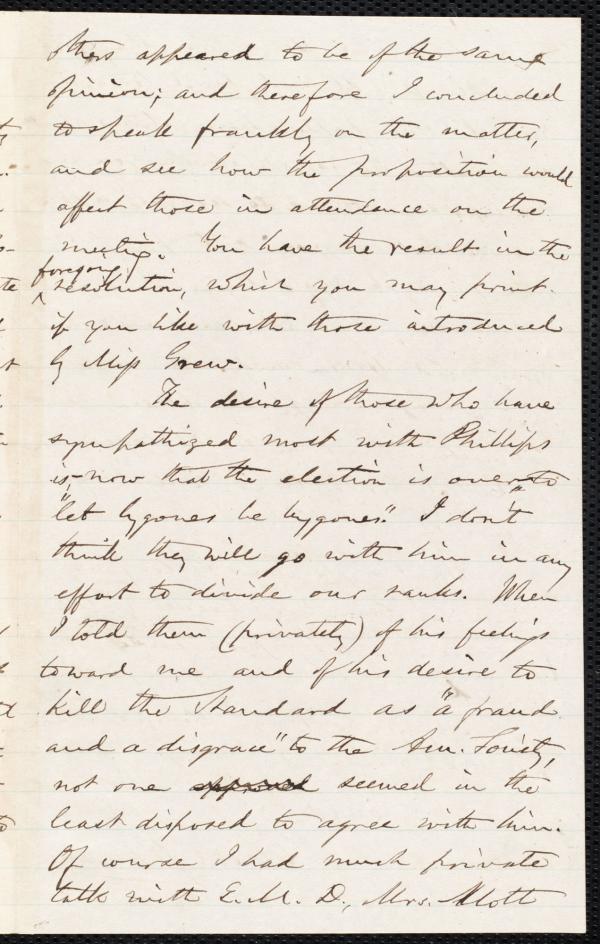 others appeared to be of the same
opinion; and therefore I concluded
to speak frankly on the matter,
and see how the proposition would
affect those in attendance on the
meeting. You have the result in the
foregoing
resolution, which you may print
if you like with those introduced
by Miss Grew.
The desire of those who have
sympathized most with Phillips
is, now that the election is over, to
"let bygones be bygones." I don't
think they will go with him in any
effort to divide our ranks. When
I told them (privately) of his feelings
toward me and of his desire to
kill the Standard as "a fraud
and a disgrace" to the Am. Society,
not one approved seemed in the
least disposed to agree with him.
Of course I had much private
talk with E. M. D., Mrs. Mott